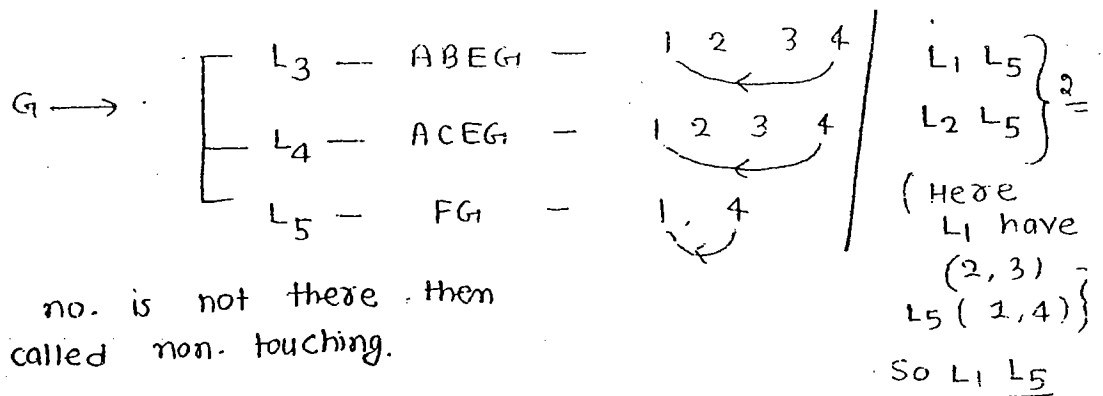 G → L3 — ABEG — 1 2 3 4
L4 — ACEG — 1 2 3 4
L5 — FG — 1 4
no. is not there then
called non. touching.
L1 L5
L2 L5 } 2
(Here
L1 have
(2, 3)
L5 (1, 4)}
So L1 L5